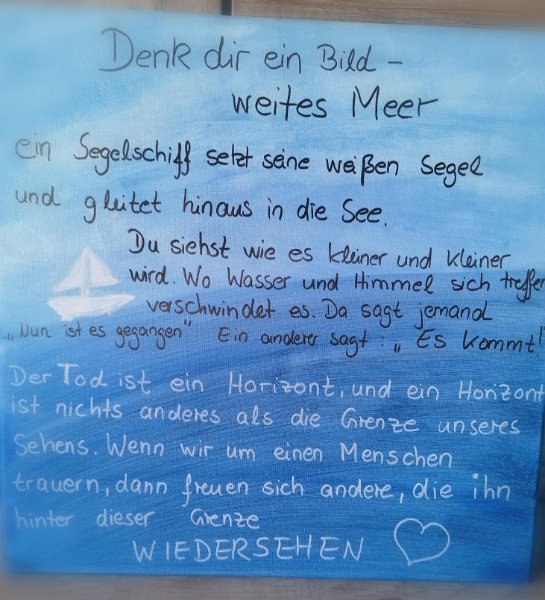 Denk dir ein Bild –
weites Meer
ein Segelschiff setzt seine weißen Segel
und gleitet hinaus in die See.
Du siehst wie es kleiner und kleiner
wird. Wo Wasser und Himmel sich treffen
verschwindet es. Da sagt jemand
„Nun ist es gegangen" Ein anderer sagt: „Es kommt!"
Der Tod ist ein Horizont, und ein Horizont
ist nichts anderes als die Grenze unseres
Sehens. Wenn wir um einen Menschen
trauern, dann freuen sich andere, die ihn
hinter dieser Grenze
WIEDERSEHEN